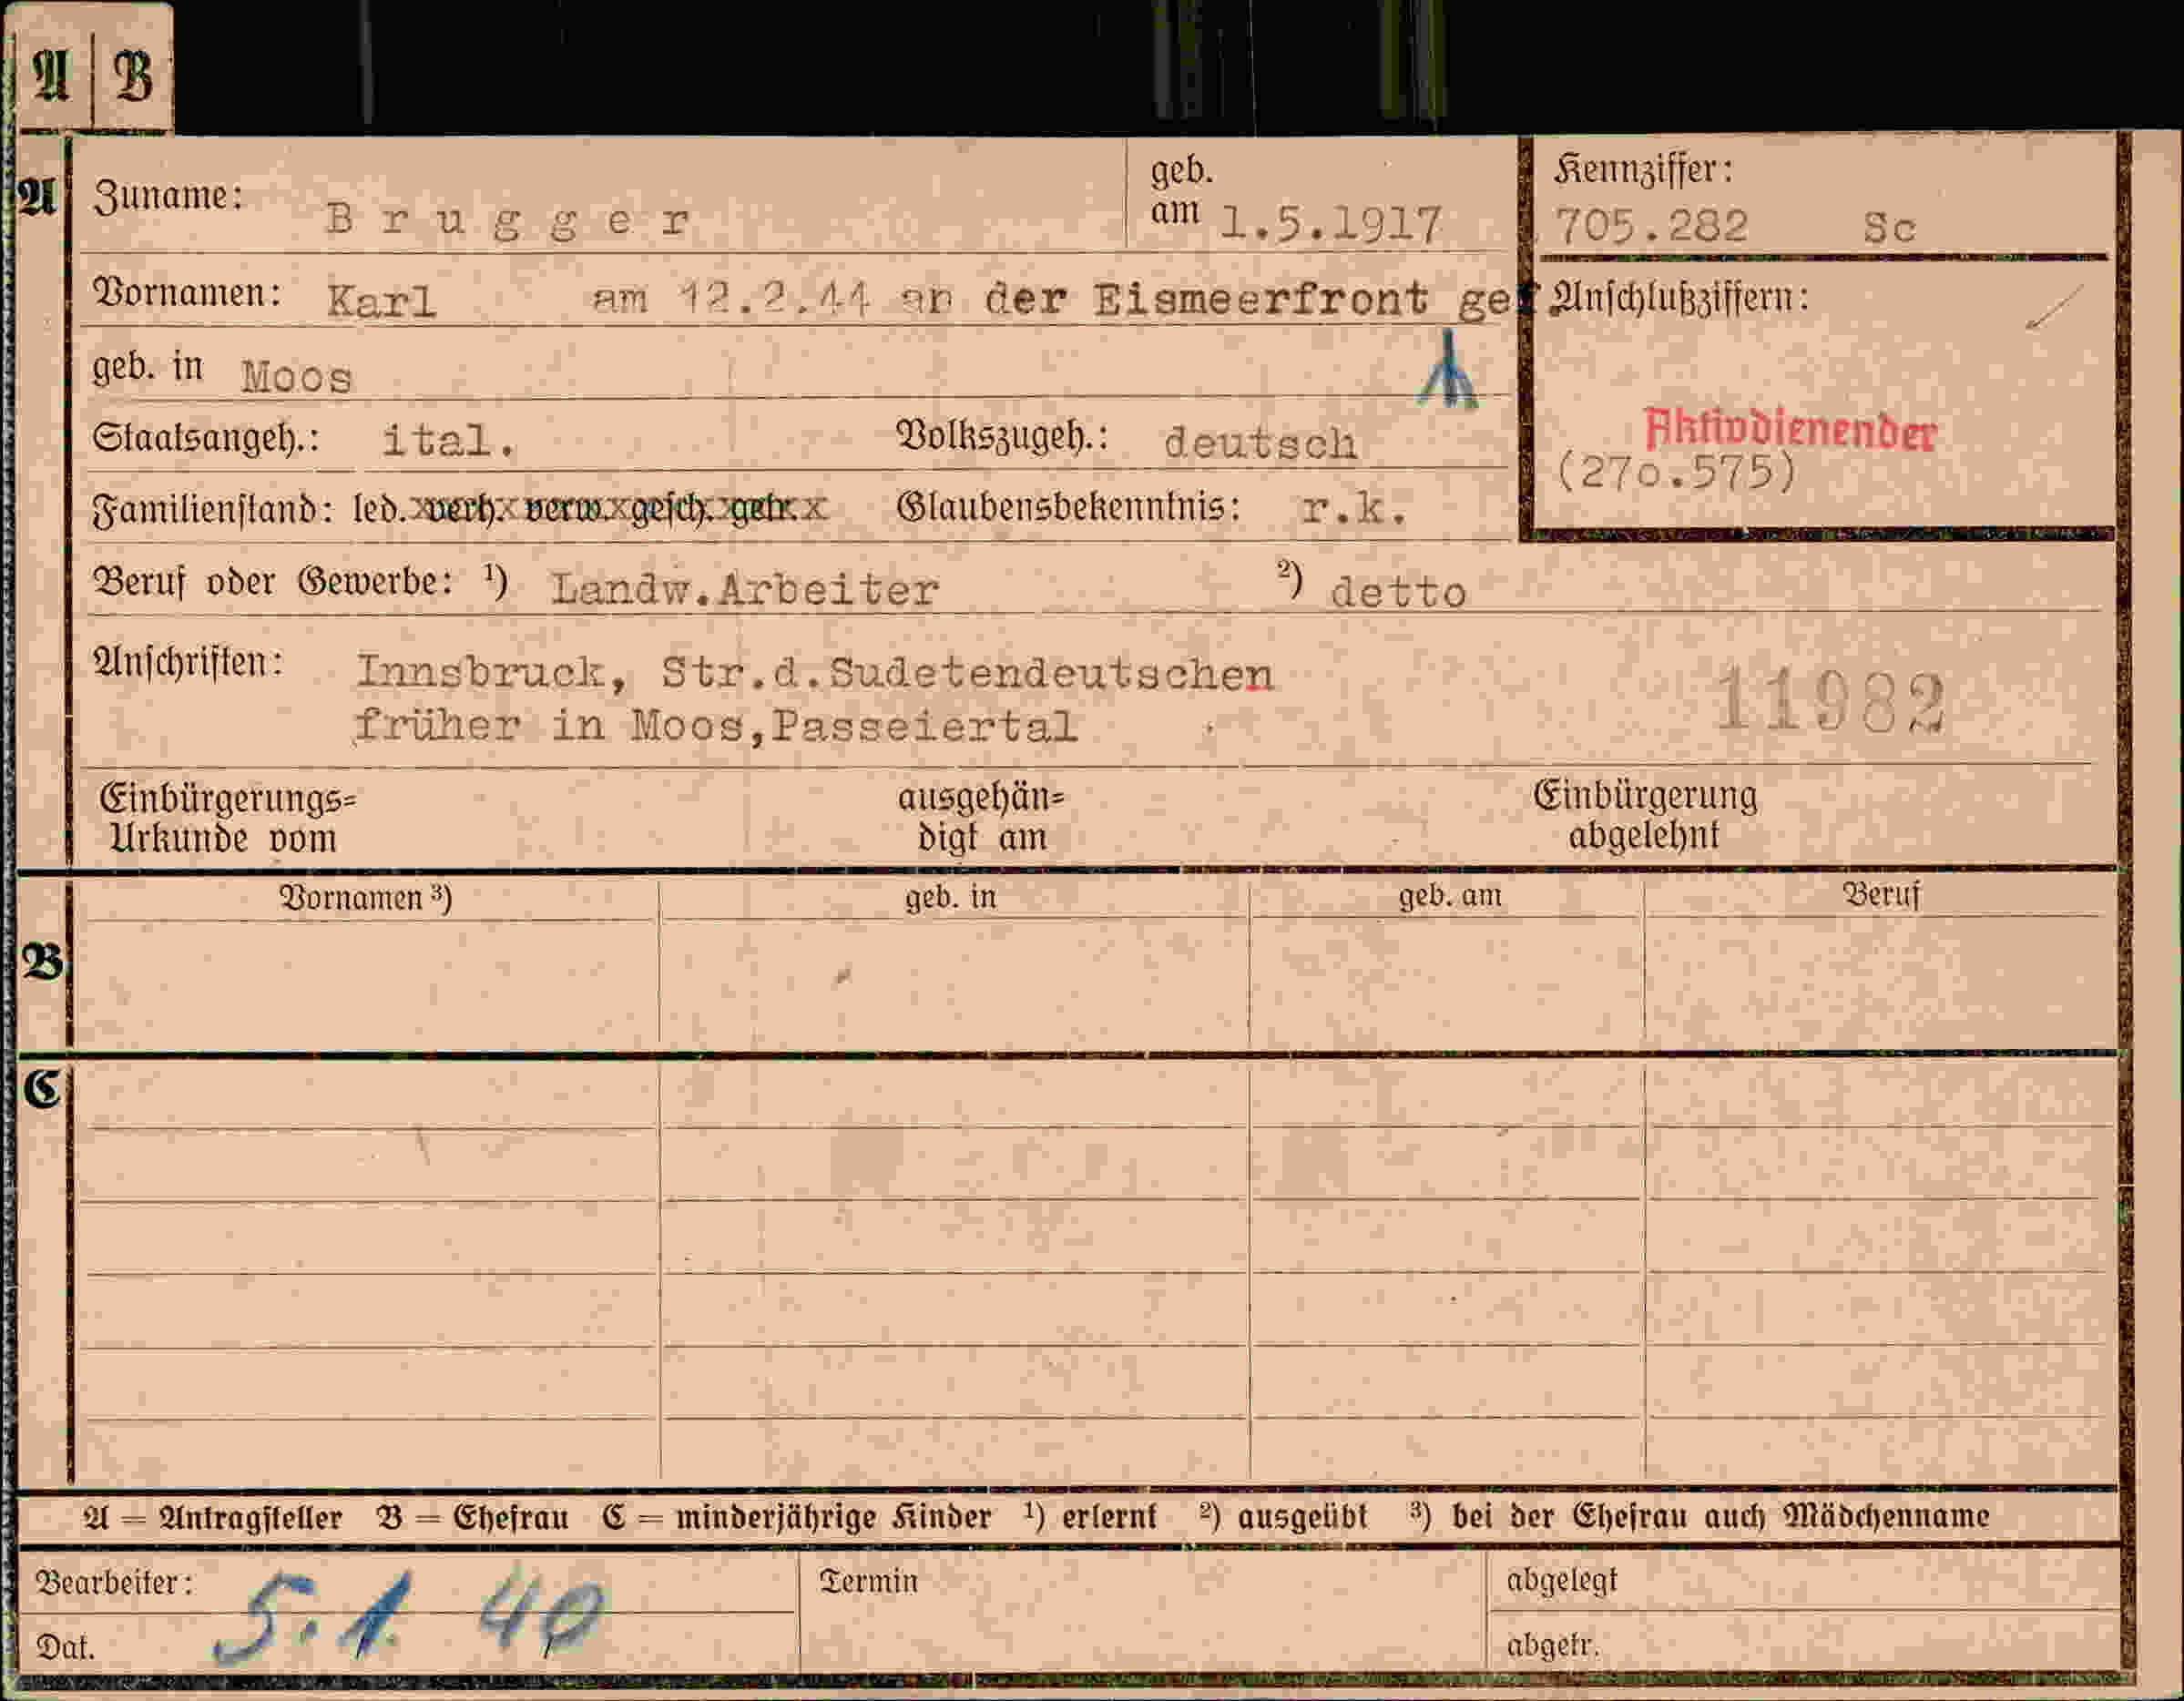 A | B
A
Zuname: Brugger geb. am 1.5.1917
Kennziffer: 705.282 Sc
Vornamen: Karl am 12.2.44 an der Eismeerfront gef
Anschlußziffern:
geb. in Moos
Staatsangeh.: ital. Volkszugeh.: deutsch
Aktivdienender
(270.575)
Familienstand: led. verh. verw. gesch. getr. Glaubensbekenntnis: r.k.
Beruf oder Gewerbe: ¹) Landw.Arbeiter ²) detto
Anschriften: Innsbruck, Str.d.Sudetendeutschen
früher in Moos,Passeiertal
11982
Einbürgerungs= ausgehän= Einbürgerung
Urkunde vom digt am abgelehnt
Vornamen ³) geb. in geb. am Beruf
B
C
A = Antragsteller B = Ehefrau C = minderjährige Kinder ¹) erlernt ²) ausgeübt ³) bei der Ehefrau auch Mädchenname
Bearbeiter: Termin abgelegt
5.1.40
Dat. abgetr.